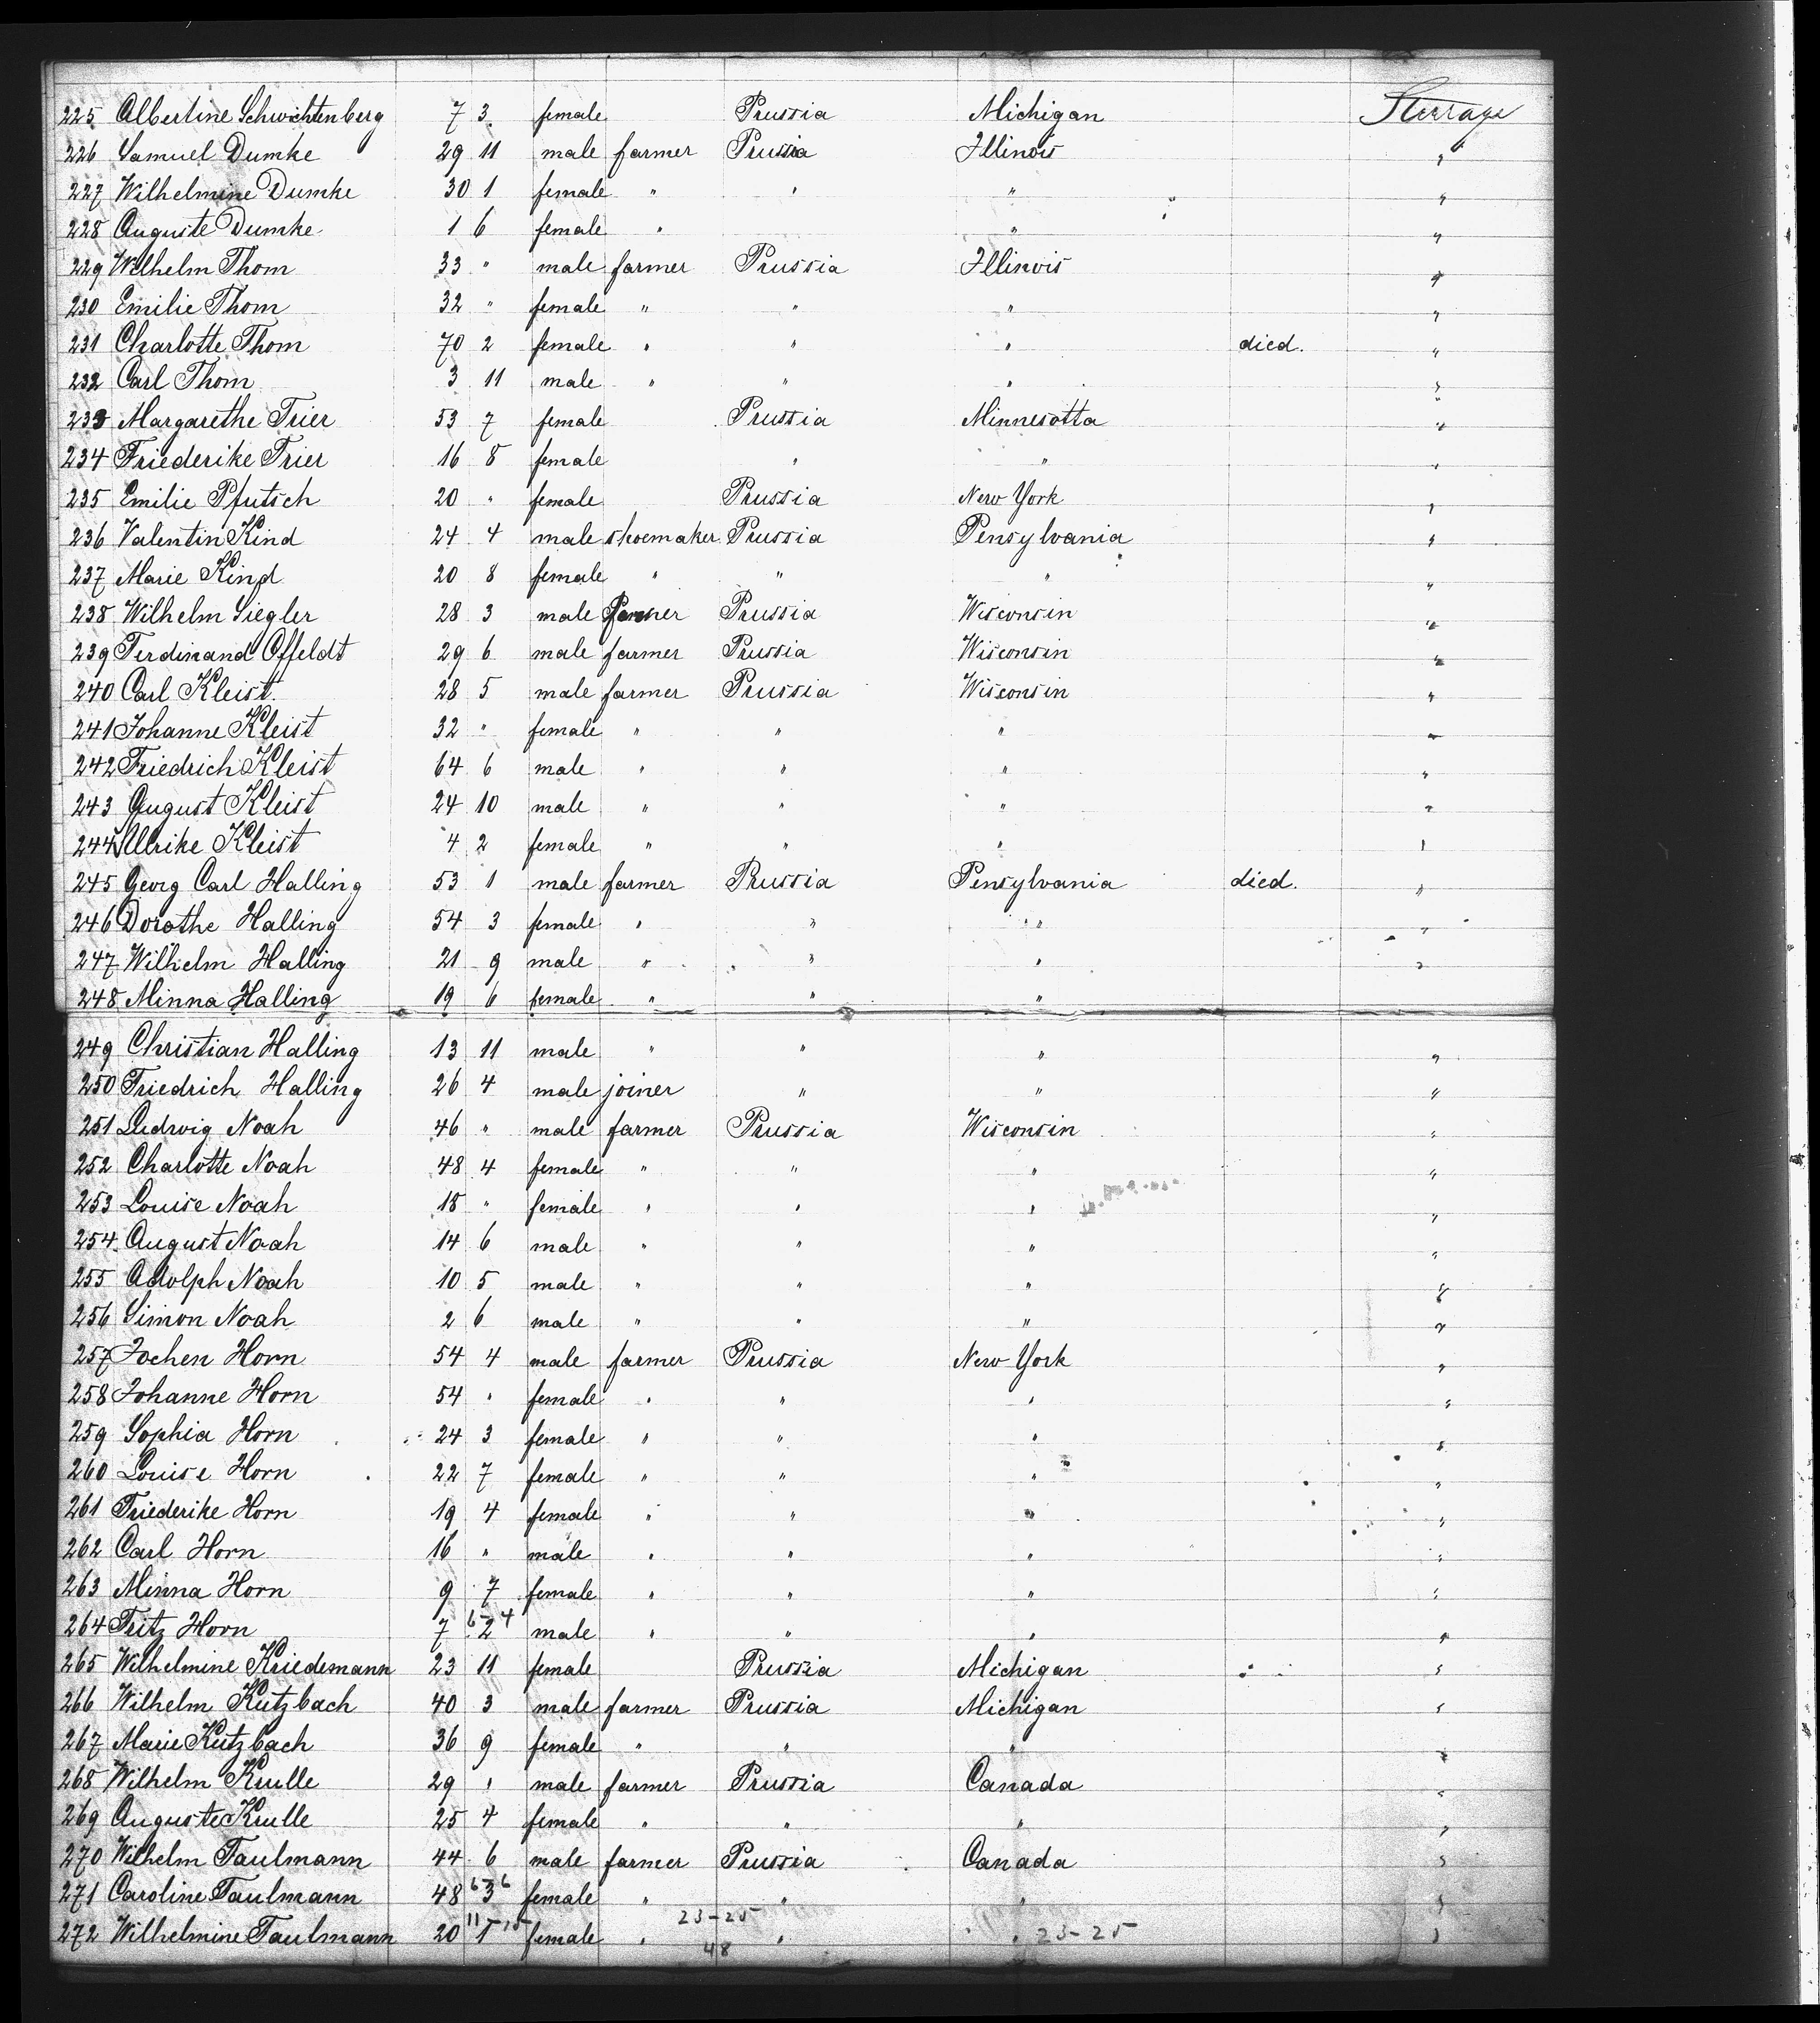 225 Albertine Schwichtenberg 7 3 female Prussia Michigan Steerage
226 Samuel Dumke 29 11 male farmer Prussia Illinois "
227 Wilhelmine Dumke 30 1 female " " " "
228 Auguste Dumke 1 6 female " " "
229 Wilhelm Thom 33 " male farmer Prussia Illinois "
230 Emilie Thom 32 " female " " " "
231 Charlotte Thom 70 2 female " " " died. "
232 Carl Thom 3 11 male " " " "
233 Margarethe Trier 53 7 female Prussia Minnesotta "
234 Friederike Trier 16 8 female " " "
235 Emilie Pfutsch 20 " female Prussia New York "
236 Valentin Kind 24 4 male shoemaker Prussia Pensylvania "
237 Marie Kind 20 8 female " " " "
238 Wilhelm Siegler 28 3 male farmer Prussia Wisconsin "
239 Ferdinand Offeldt 29 6 male farmer Prussia Wisconsin "
240 Carl Kleist 28 5 male farmer Prussia Wisconsin "
241 Johanne Kleist 32 " female " " " "
242 Friedrich Kleist 64 6 male " " " "
243 August Kleist 24 10 male " " " "
244 Ulrike Kleist 4 2 female " " " "
245 Georg Carl Halling 53 1 male farmer Prussia Pensylvania died. "
246 Dorothe Halling 54 3 female " " " "
247 Wilhelm Halling 21 9 male " " " "
248 Minna Halling 19 6 female " " "
249 Christian Halling 13 11 male " " " "
250 Friedrich Halling 26 4 male joiner " " "
251 Ludwig Noah 46 " male farmer Prussia Wisconsin "
252 Charlotte Noah 48 4 female " " " "
253 Louise Noah 18 " female " " " "
254 August Noah 14 6 male " " " "
255 Adolph Noah 10 5 male " " " "
256 Simon Noah 2 6 male " " " "
257 Jochen Horn 54 4 male farmer Prussia New York "
258 Johanne Horn 54 " female " " " "
259 Sophia Horn 24 3 female " " " "
260 Louise Horn 22 7 female " " " "
261 Friederike Horn 19 4 female " " " "
262 Carl Horn 16 " male " " " "
263 Minna Horn 9 7 female " " " "
264 Fritz Horn 7 6-4 2 male " " " "
265 Wilhelmine Kriedemann 23 11 female Prussia Michigan "
266 Wilhelm Kutzbach 40 3 male farmer Prussia Michigan "
267 Marie Kutzbach 36 9 female " " " "
268 Wilhelm Krulle 29 " male farmer Prussia Canada "
269 Auguste Krulle 25 4 female " " " "
270 Wilhelm Taulmann 44 6 male farmer Prussia Canada "
271 Caroline Taulmann 48 6-6 3 female " " " "
23-25
272 Wilhelmine Taulmann 20 1 female " " " 23-25 "
48